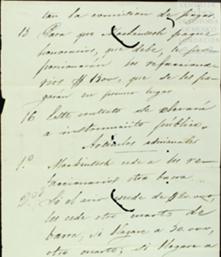 tan la comision de pagar
15 Para que Mackintosh pague
honorarios, que debe, le pro-
porcionarán los refacciona-
rios $ 1500, que se les pa-
garán en primer lugar
16. Este contrato se elevará
a instrumento público.
Artículos adicionales
1.º Mackintosh cede a los re-
faccionarios otra barra
2.º Si el año
les cede otro cuarto de
barra, si llegare a 30.000,
otro cuarto; si llegare a